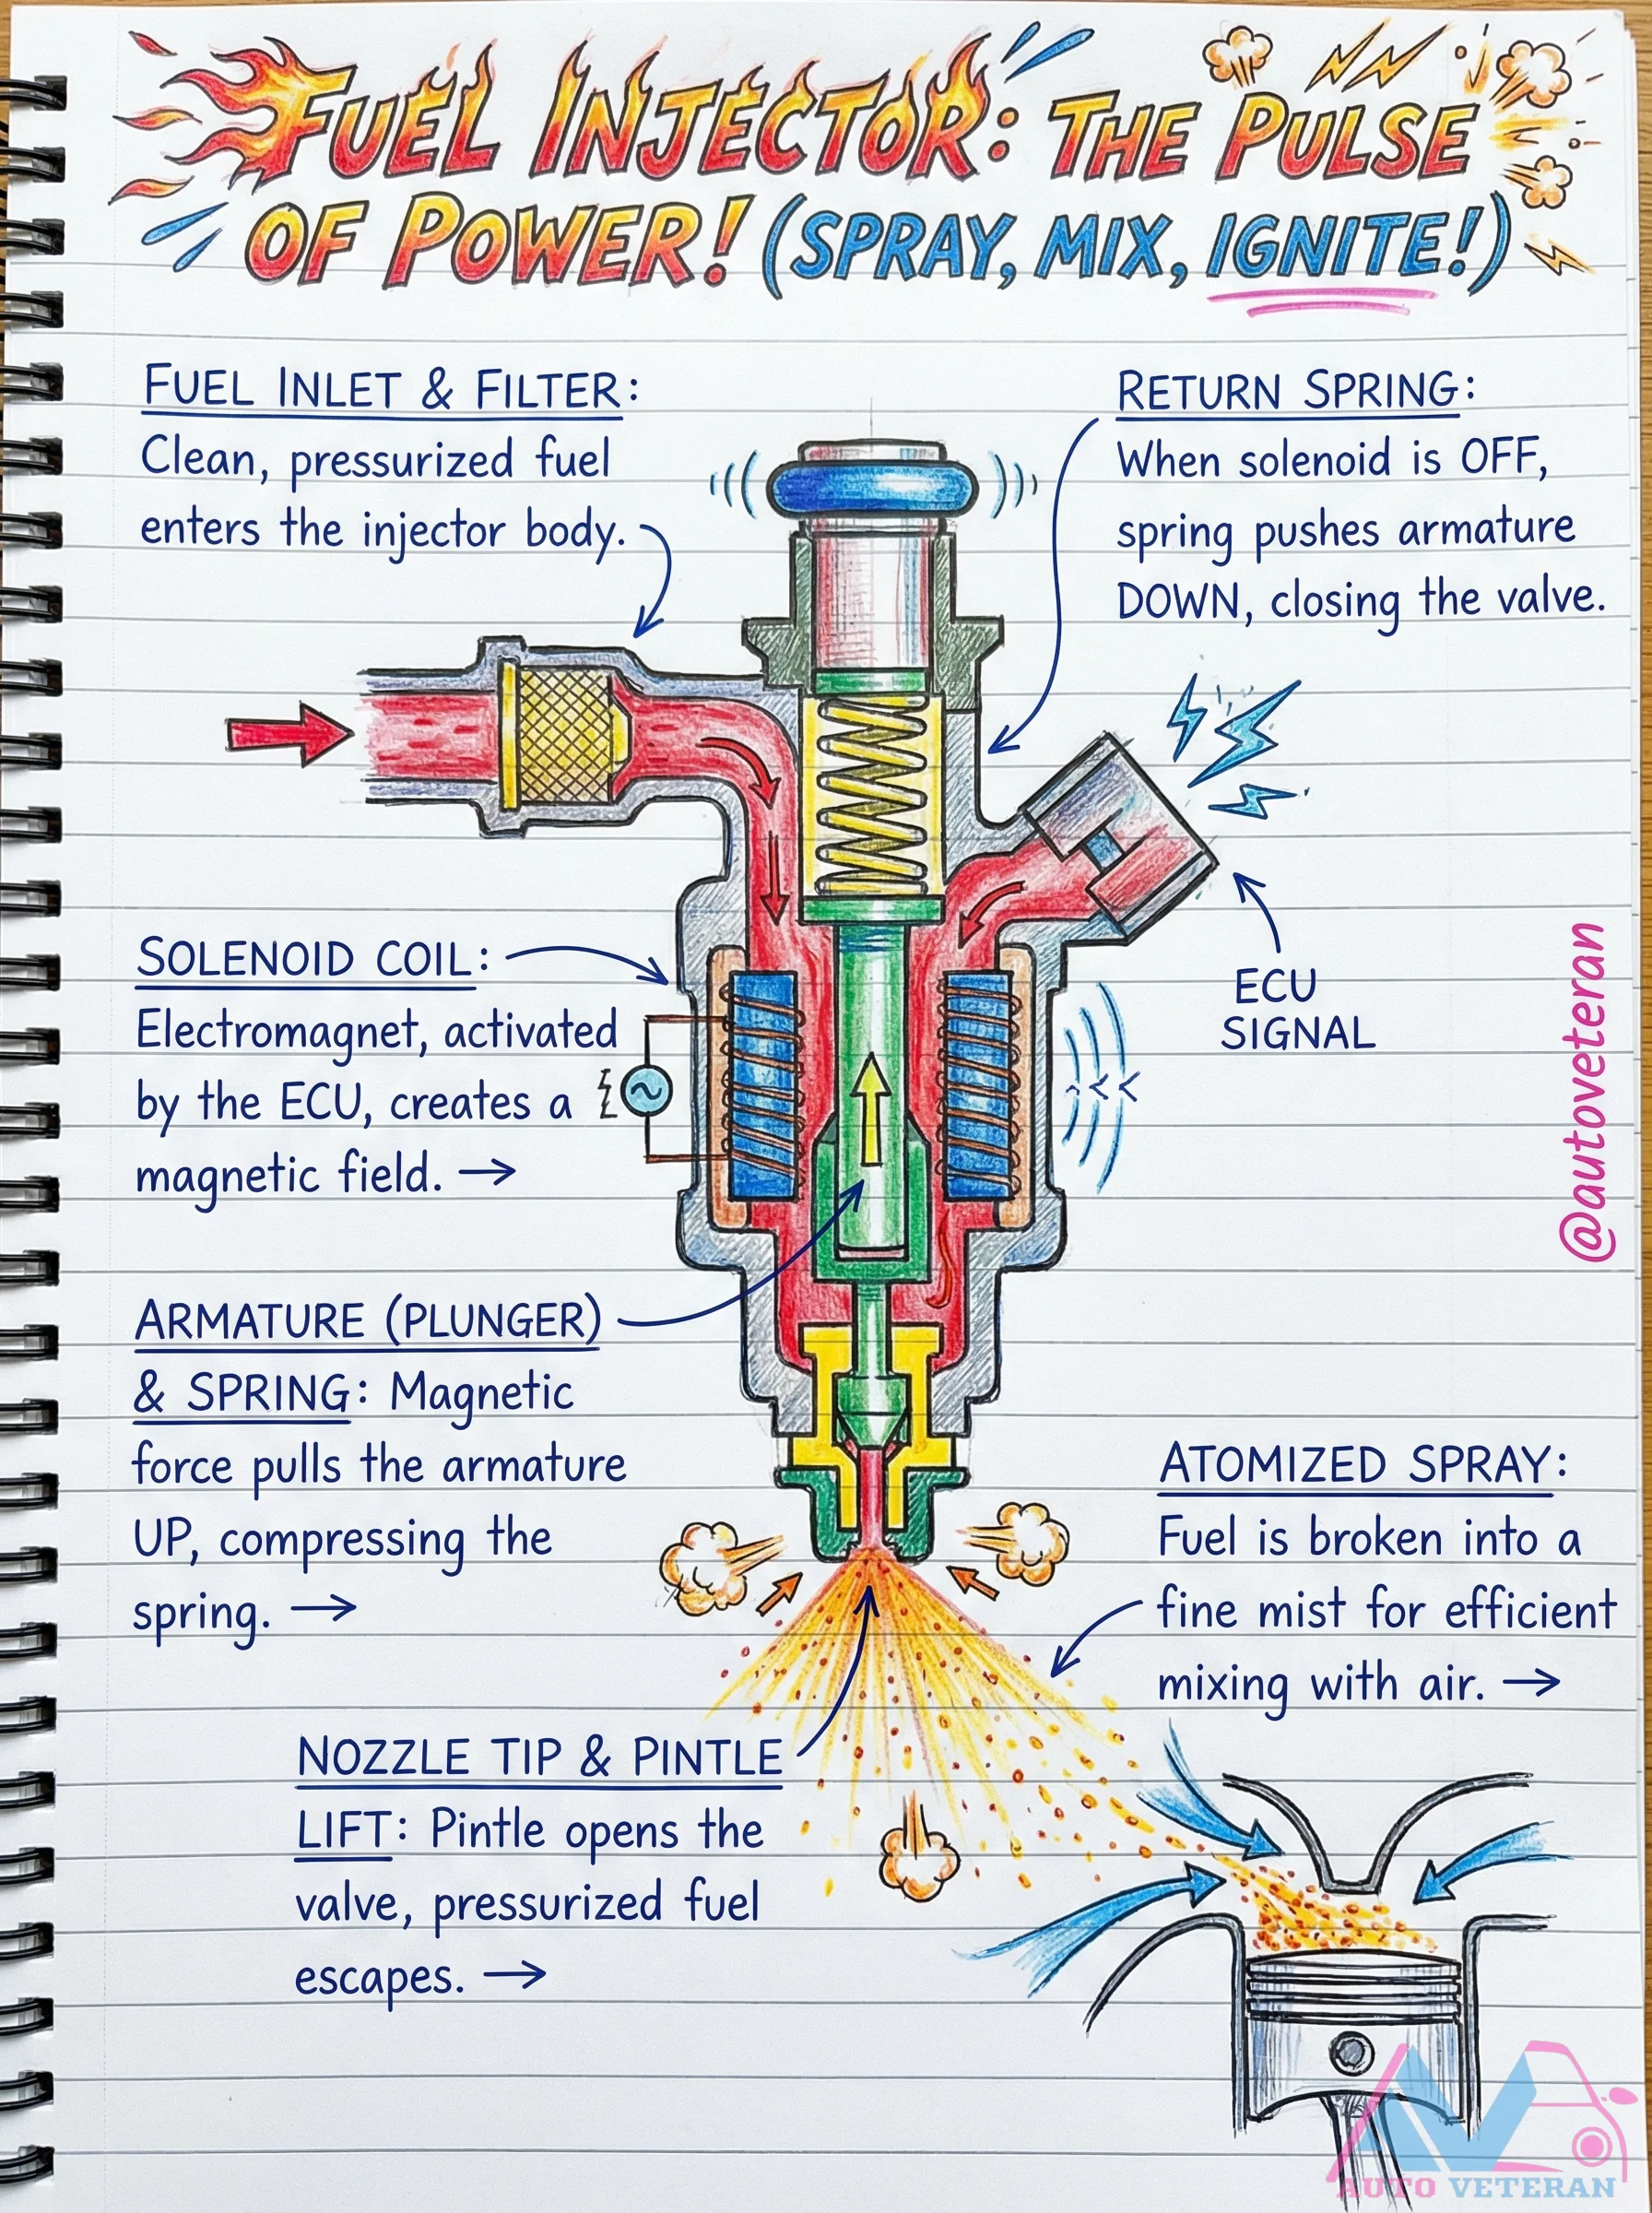 FUEL INJECTOR: THE PULSE
OF POWER! (SPRAY, MIX, IGNITE!)
FUEL INLET & FILTER:
Clean, pressurized fuel
enters the injector body.
RETURN SPRING:
When solenoid is OFF,
spring pushes armature
DOWN, closing the valve.
SOLENOID COIL:
Electromagnet, activated
by the ECU, creates a
magnetic field. →
ECU
SIGNAL
@autoveteran
ARMATURE (PLUNGER)
& SPRING: Magnetic
force pulls the armature
UP, compressing the
spring. →
ATOMIZED SPRAY:
Fuel is broken into a
fine mist for efficient
mixing with air. →
NOZZLE TIP & PINTLE
LIFT: Pintle opens the
valve, pressurized fuel
escapes. →
AV
AUTO VETERAN